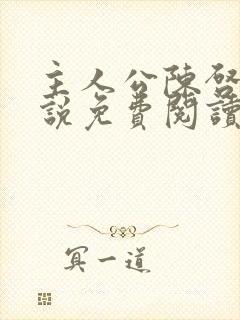 主人公陳啓
說免費閱讀
冥一道